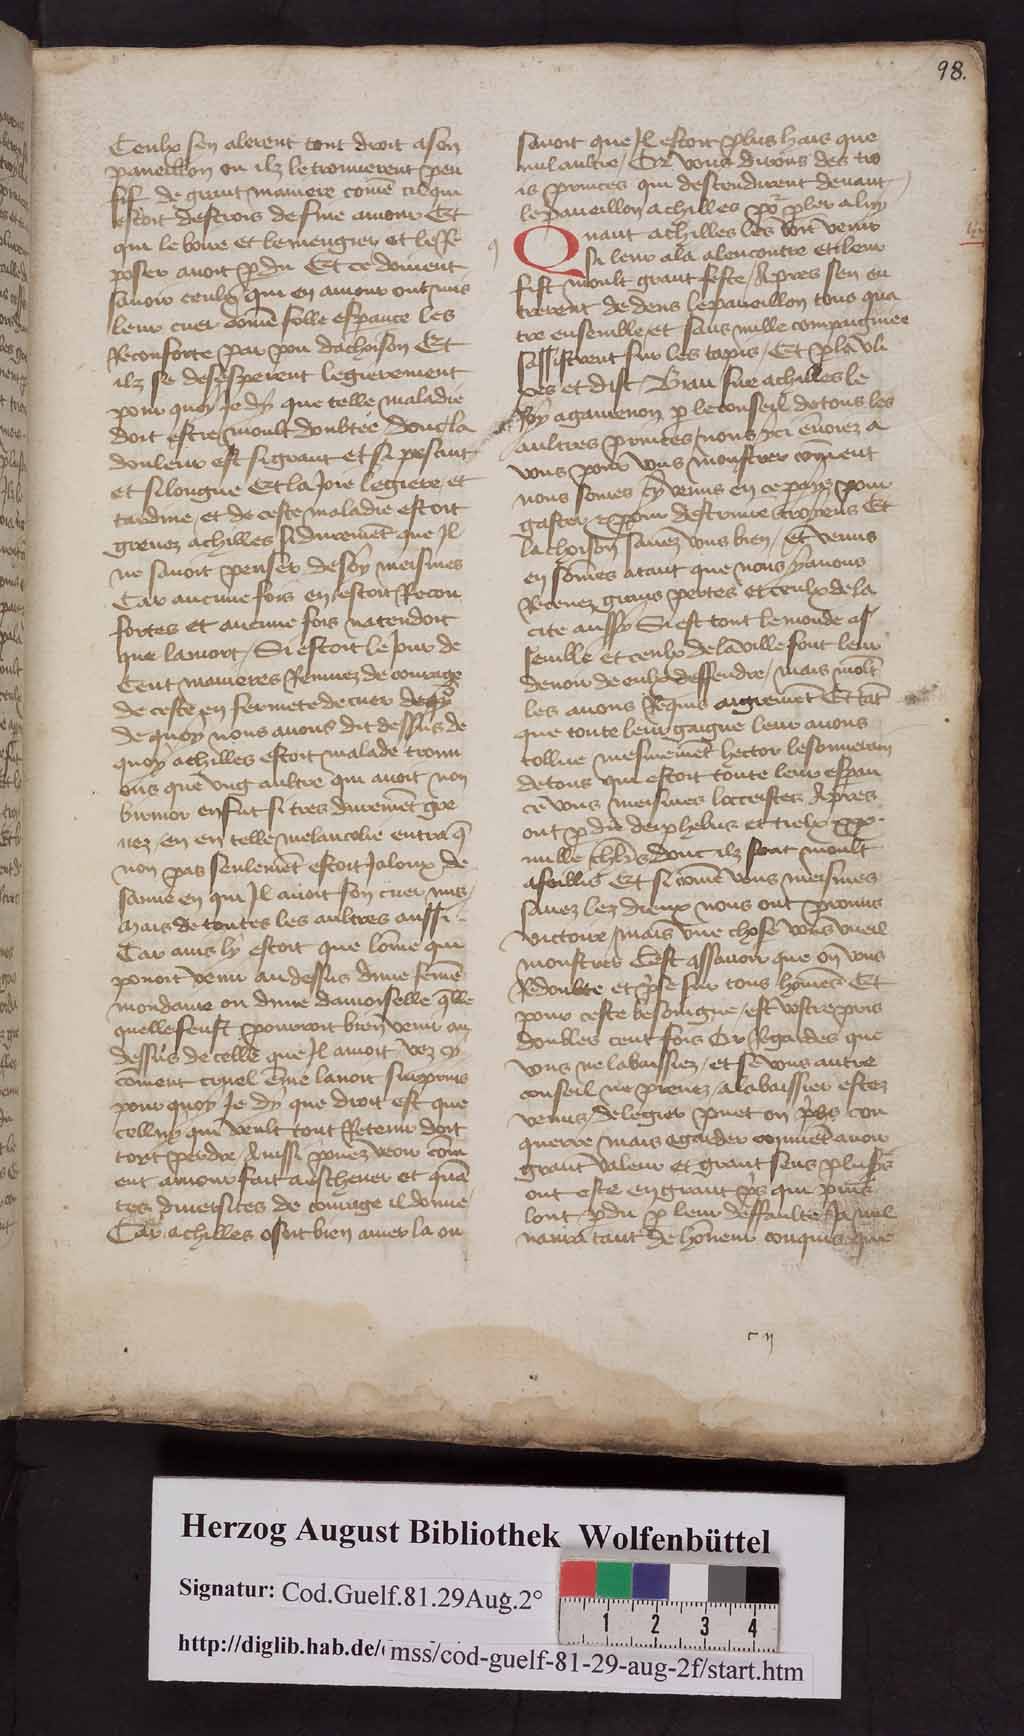 98.
Ceulx sen alerent tout droit a son
paneillon ou ilz le trouuerent pen
sif de grant maniere come cil qui
estoit destrois de fine amour Et
qui le boire et le mengier et le re
poser auoit pdu Et ce doiuent
sauoir ceulx qui en amour ont mis
leur cuer come folle espance les
Reconforte par pou dachoison Et
ilz se desesperent legierement
pour quoy Je dy que telle maladie
doit estre moult doubtee dont la
douleur est si grant et si pesant
et si longue Et la Joie legiere et
tardiue / et de ceste maladie estoit
greuez achilles si duremet que Il
ne sauoit penser de soy meismes
Car aucune fois en estoit Recon
fortes et aucune fois natendoit
que la mort / Si estoit le Jour de
Cent manieres Remuez de courage
de ceste en fermete de cuer
de quoy nous auons dit dessus de
quoy achilles estoit malade trouu
ons que vng aultre qui auoit non
birmor en fut si tres duremet gre
uez / en en telle melancolie entra q
non pas seulemet estoit Jaloux de
samie en qui Il auoit son cuer mis /
Mais de toutes les aultres aussi
Car auis ly estoit que lome qui
pouoit venir au dessus dune feme
mondaine ou dune damoiselle qlle
quelle feust pourroit bien venir au
dessus de celle que Il amoit / vez cy
coment cruel eme lauoit surpris
pour quoy Je dy que droit est que
celluy qui veult tout Retenir doit
tout perdre / Aussi pouez veoir com
ent amour fait a eschener et qua
tes diuersites de courage il donne /
Car achilles osoit bien amer la ou
sauoit que Il estoit plus hais que
nul aultre / Cy vous dirons des tro
is princes qui descendirent deuant
le paueillon achilles po pler a luy
Quant achilles les voit venir
si leur ala alencontre et leur
fist moult grant feste / Apres sen en
trerent de dens le paueillon tous qua
tre ensemble / et sans nulle compaignie
sassistrent sur les tapis / Et pla vli
xes et dist Biau sire achilles le
Roy agamenon p le conseil de tous les
aultres princes / nous yci enuoiez a
vous pour vous monstrer coment
nous somes cy venus en ce pays pour
gaster et pour destruire troyens Et
lachoison sauez vous bien / Et venus
en somes atant que nous y auons
Receuez grans pertes et ceulx de la
cite aussy Si est tout le monde as
semble et ceulx de la ville font leur
deuoir de eulx deffendre / mais molt
les auons Requis aigremet Et tat
que toute leur gaigne leur auons
tollue mesmemet hector le souuerain
de tous qui estoit toute leur espan
ce vous meismes locceistes Apres
ont pdu deiphebus et tielx xxx.
mille chlrs donc ilz sont moult
afoillis Et si come vous meismes
sauez lez dieux nous ont promis
victoire / mais vne chose vous vueil
monstrer Cest assauoir que on vous
Redoubte et pse sur tous homes Et
pour ceste besoingne / est vostre pris
doubles cent fois Or Regardes que
vous ne labaissiez / et se vous autre
conseil ne prenez / alabaissier estez
venus / de legier puet on pris con
querre mais agarder conuiet auoir
grant valeur et grant sens plusrs
ont este en grant pris qui puis
lont pdu p leur deffaulte Ja nul
naura tant de honeur conquis que
Herzog August Bibliothek Wolfenbüttel
Signatur: Cod.Guelf.81.29Aug.2°
1 2 3 4
http://diglib.hab.de/mss/cod-guelf-81-29-aug-2f/start.htm